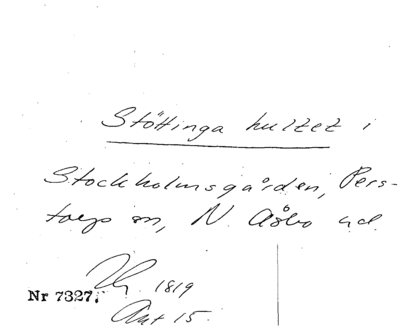 Stöttinga hultet i
Stockholmsgården, Pers-
torps sn, N. Åsbo hd.
1819
Nr 7327.
Ant 15.